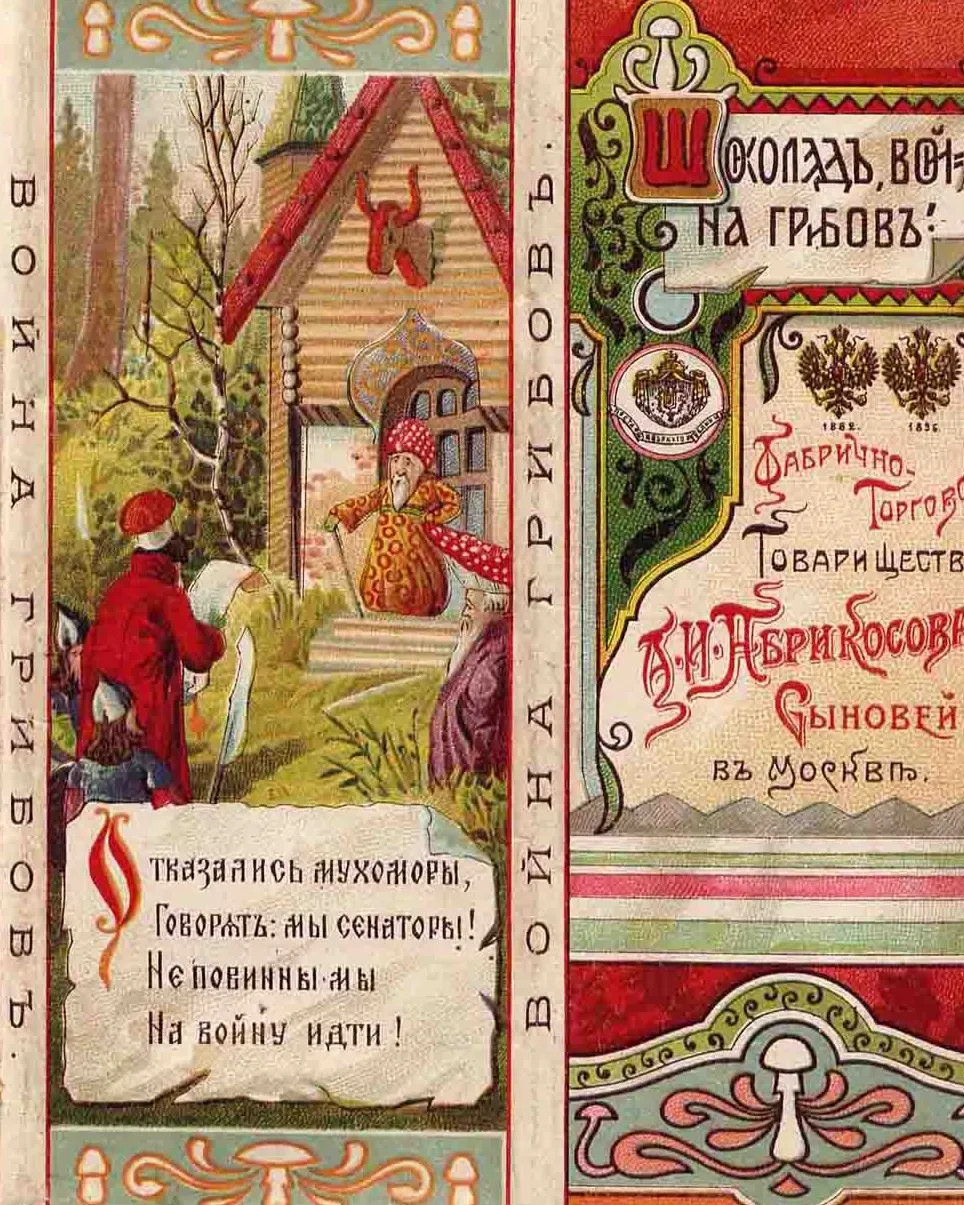 ВОЙНА ГРИБОВЪ.
Отказались мухоморы,
Говорятъ: мы сенаторы!
Не повинны мы
На войну идти!
ВОЙНА ГРИБОВЪ.
Шоколадъ, ВОЙ=
НА ГРИБОВЪ:
1882. 1896
Фабрично-
Торгово
Товариществ
А.И.Абрикосова
Сыновей
въ Москвѣ.